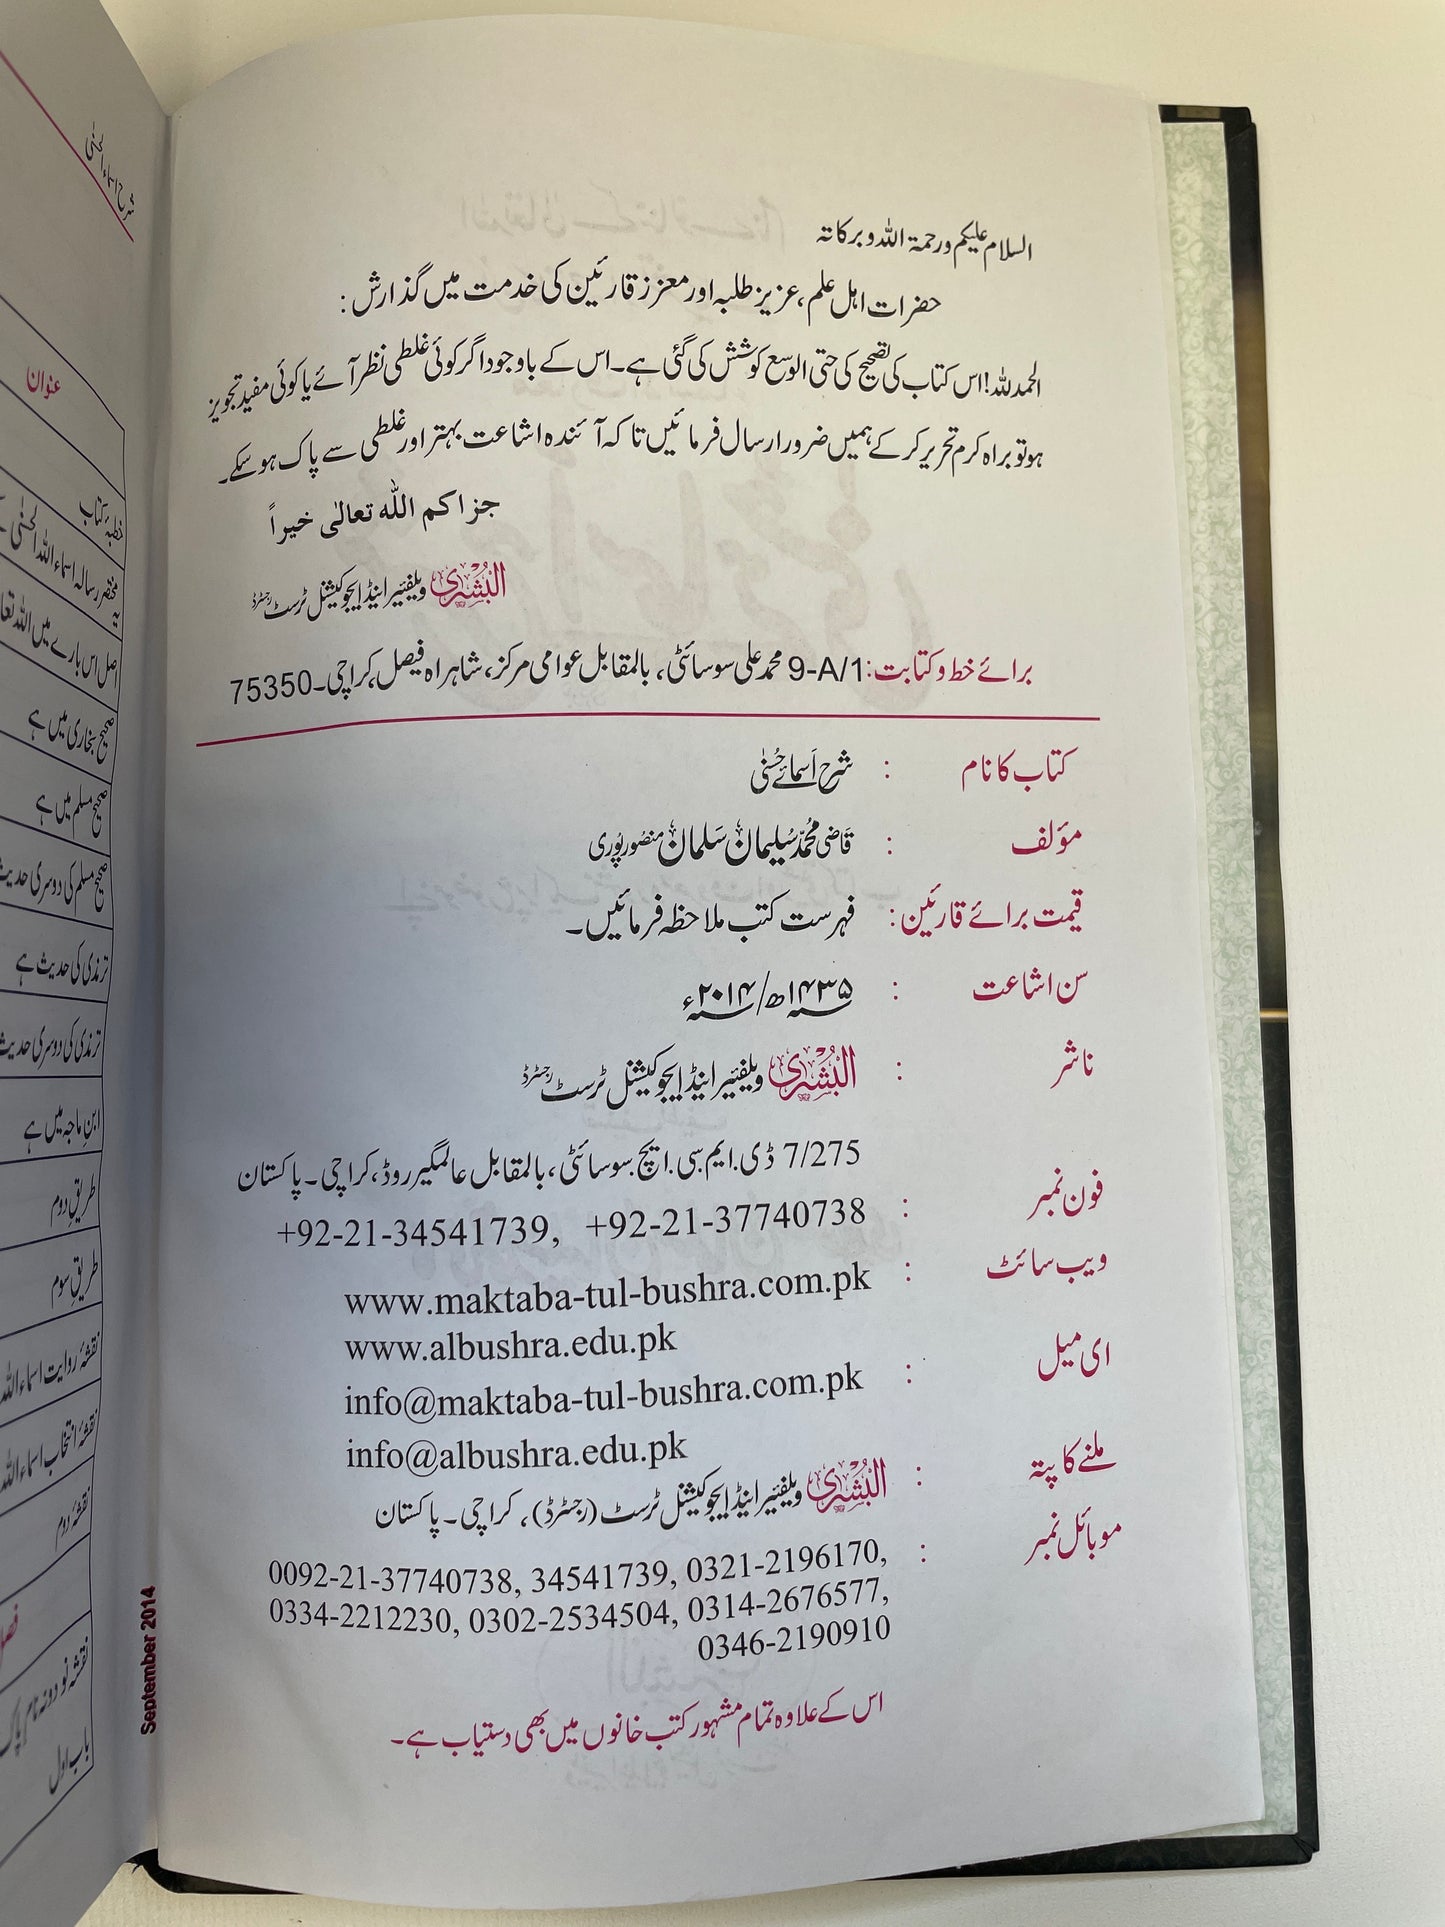 السلام علیکم ورحمۃ اللہ وبرکاتہ
حضرات اہل علم، عزیز طلبہ اور معزز قارئین کی خدمت میں گذارش:
الحمدللہ! اس کتاب کی تصحیح کی حتی الوسع کوشش کی گئی ہے۔ اس کے باوجود اگر کوئی غلطی نظر آئے یا کوئی مفید تجویز
ہو تو براہ کرم تحریر کرکے ہمیں ضرور ارسال فرمائیں تاکہ آئندہ اشاعت بہتر اور غلطی سے پاک ہوسکے۔
جزاکم اللہ تعالٰی خیراً
البُشریٰ ویلفئیر اینڈ ایجوکیشنل ٹرسٹ رجسٹرڈ
برائے خط و کتابت: 9-A/1 محمد علی سوسائٹی، بالمقابل عوامی مرکز، شاہراہ فیصل، کراچی۔ 75350
کتاب کا نام : شرح اَسمائے حُسنٰی
مؤلف : قاضی مُحمّد سُلیمان سَلمان منصُورپُوری
قیمت برائے قارئین: فہرست کتب ملاحظہ فرمائیں۔
سن اشاعت : ۱۴۳۵ھ/۲۰۱۴ء
ناشر : البُشریٰ ویلفئیر اینڈ ایجوکیشنل ٹرسٹ رجسٹرڈ
7/275 ڈی.ایم.سی.ایچ.سوسائٹی، بالمقابل عالمگیر روڈ، کراچی۔ پاکستان
فون نمبر : +92-21-34541739, +92-21-37740738
ویب سائٹ : www.maktaba-tul-bushra.com.pk
www.albushra.edu.pk
ای میل : info@maktaba-tul-bushra.com.pk
info@albushra.edu.pk
ملنے کا پتہ : البُشریٰ ویلفئیر اینڈ ایجوکیشنل ٹرسٹ (رجسٹرڈ)، کراچی۔ پاکستان
موبائل نمبر : 0092-21-37740738, 34541739, 0321-2196170,
0334-2212230, 0302-2534504, 0314-2676577,
0346-2190910
اس کے علاوہ تمام مشہور کتب خانوں میں بھی دستیاب ہے۔
September 2014
شرح اسماء الحسنٰی
عنوان
خطبۂ کتاب
مختصر رسالہ اسماء اللہ الحسنٰی
اصل اس بارے میں اللہ
صحیح بخاری میں ہے
صحیح مسلم میں ہے
صحیح مسلم کی دوسری حدیث
ترمذی کی حدیث ہے
ترمذی کی دوسری حدیث
ابنِ ماجہ میں ہے
طریقِ دوم
طریقِ سوم
نقشۂ روایت اسماء اللہ
نقشۂ انتخاب اسماء اللہ
نقشۂ دوم
نقشہ نود ونہ نام پاک
باب اول